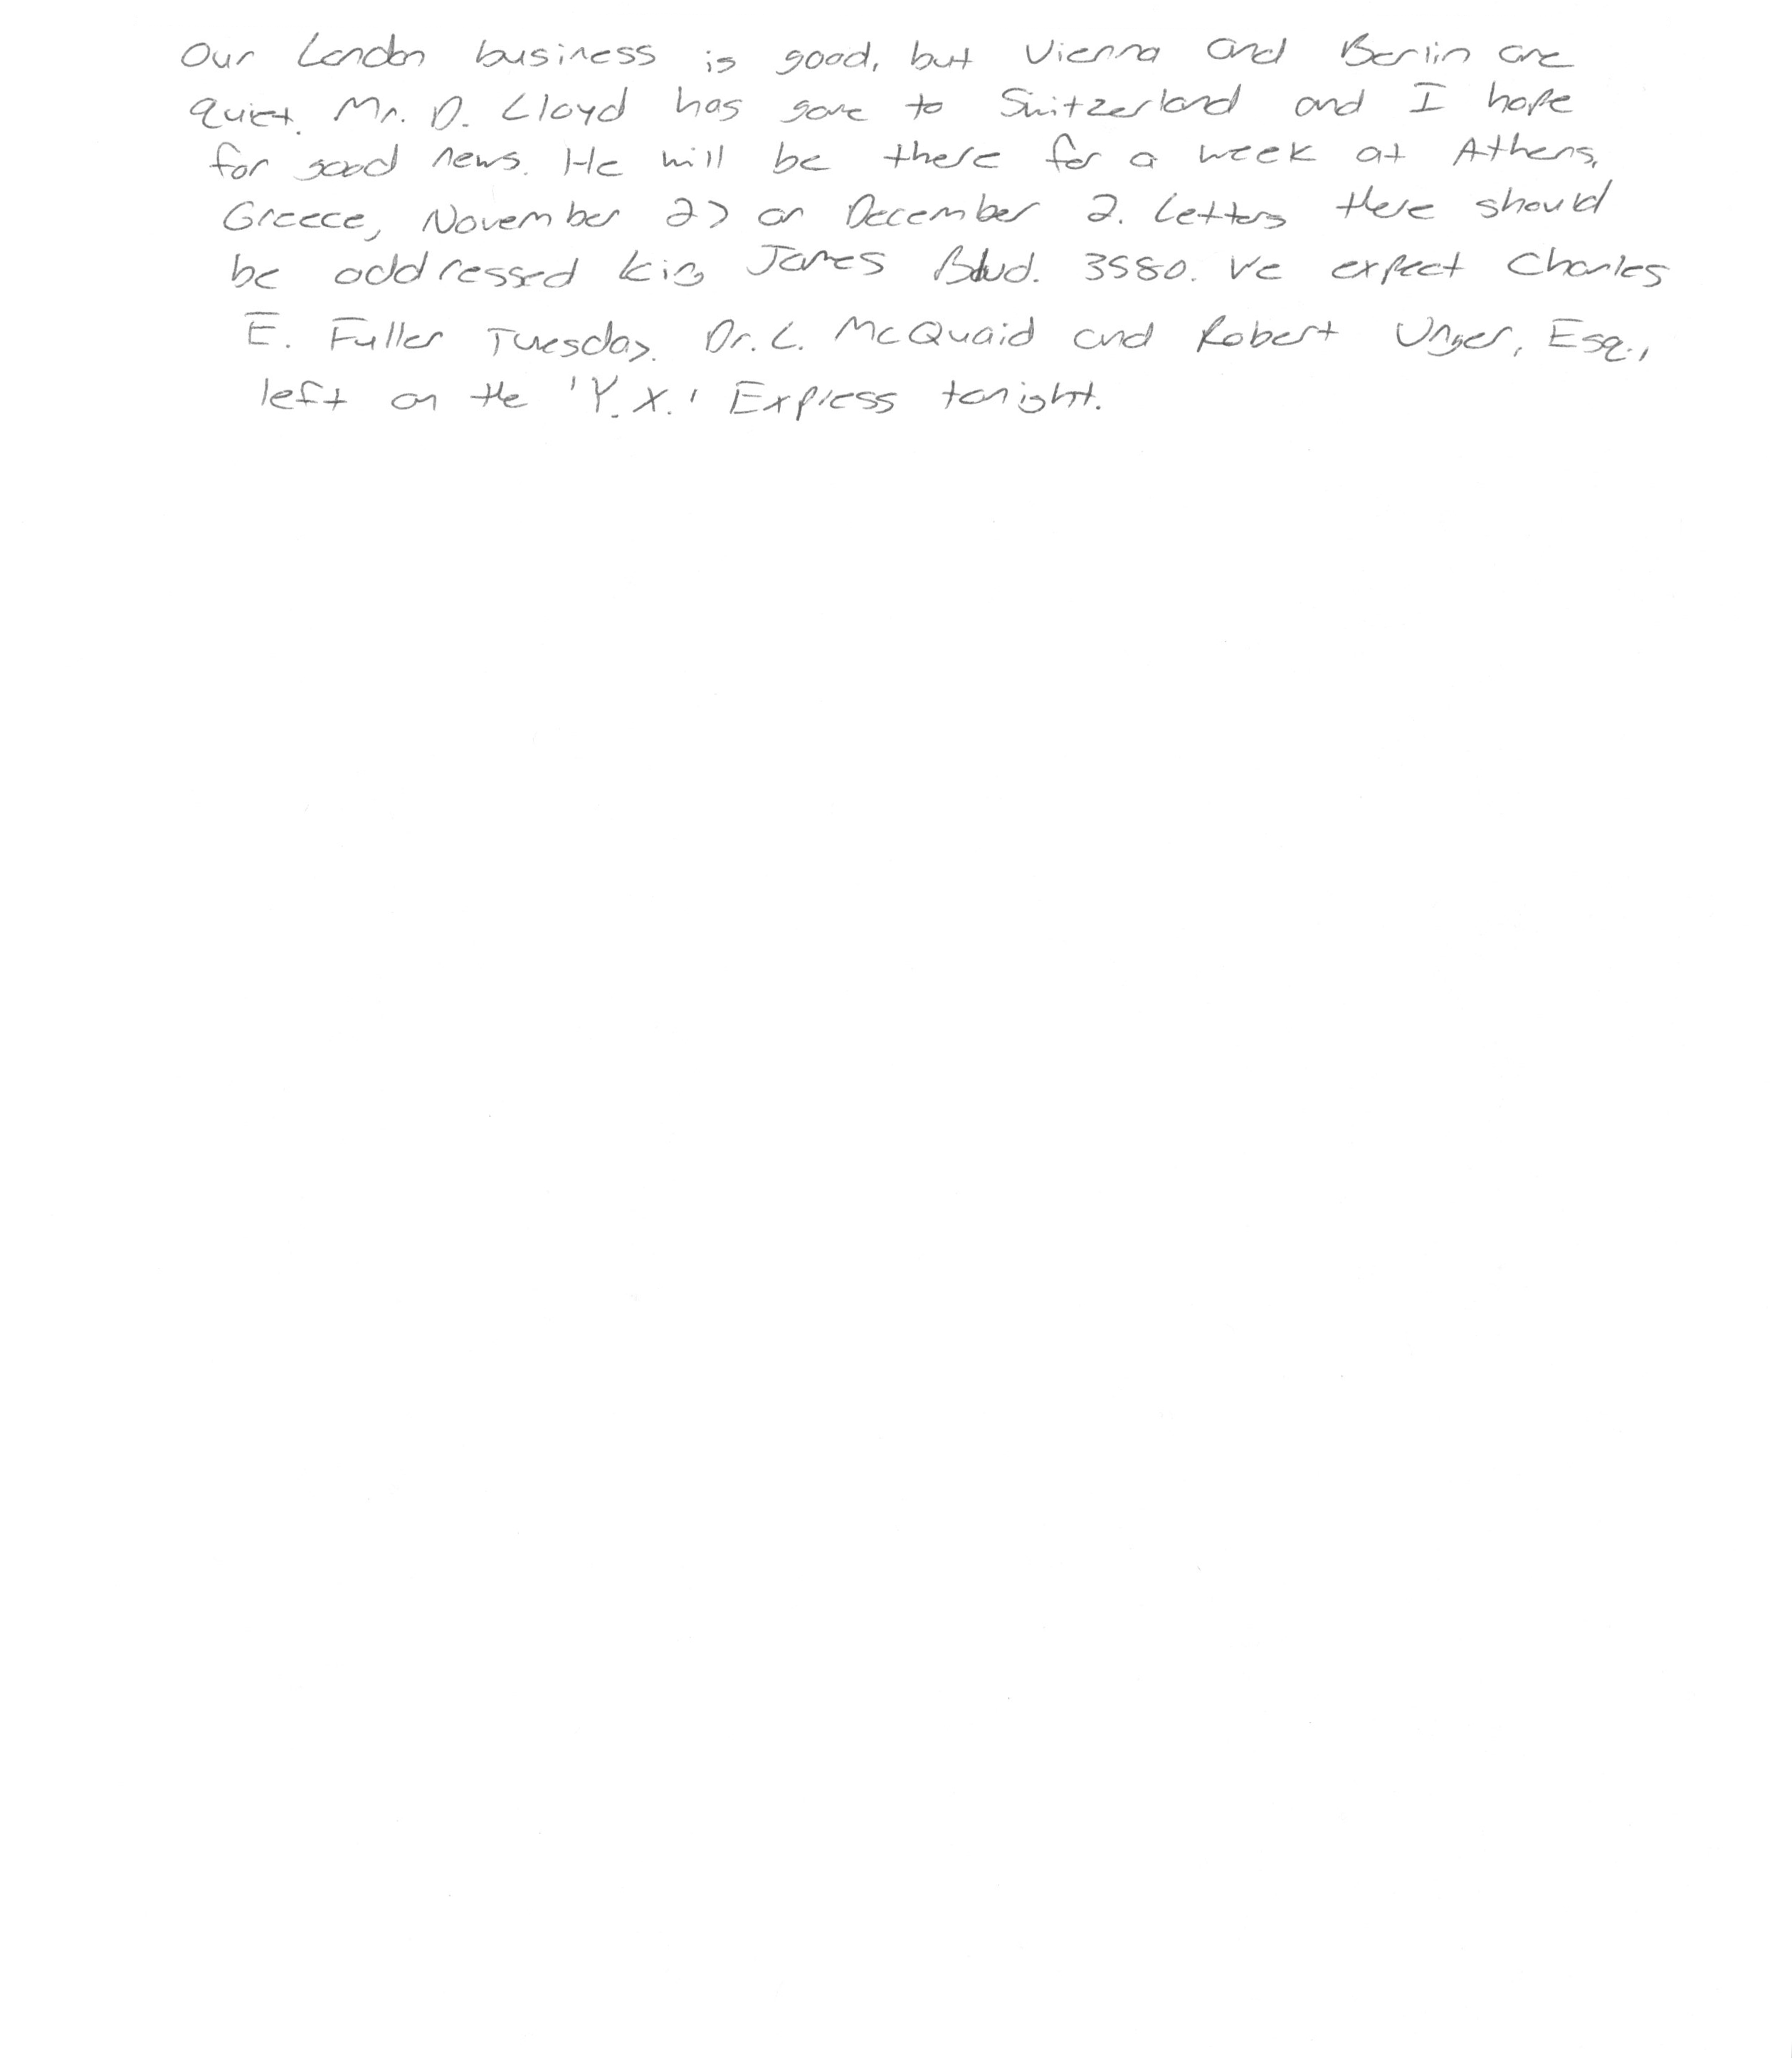 Our London business is good, but Vienna and Berlin are
quiet. Mr. D. Lloyd has gone to Switzerland and I hope
for good news. He will be there for a week at Athens,
Greece, November 27 or December 2. Letters there should
be addressed King James Blvd. 3580. We expect Charles
E. Fuller Tuesday. Dr. L. McQuaid and Robert Unger, Esq.,
left on the 'Y.X.' Express tonight.